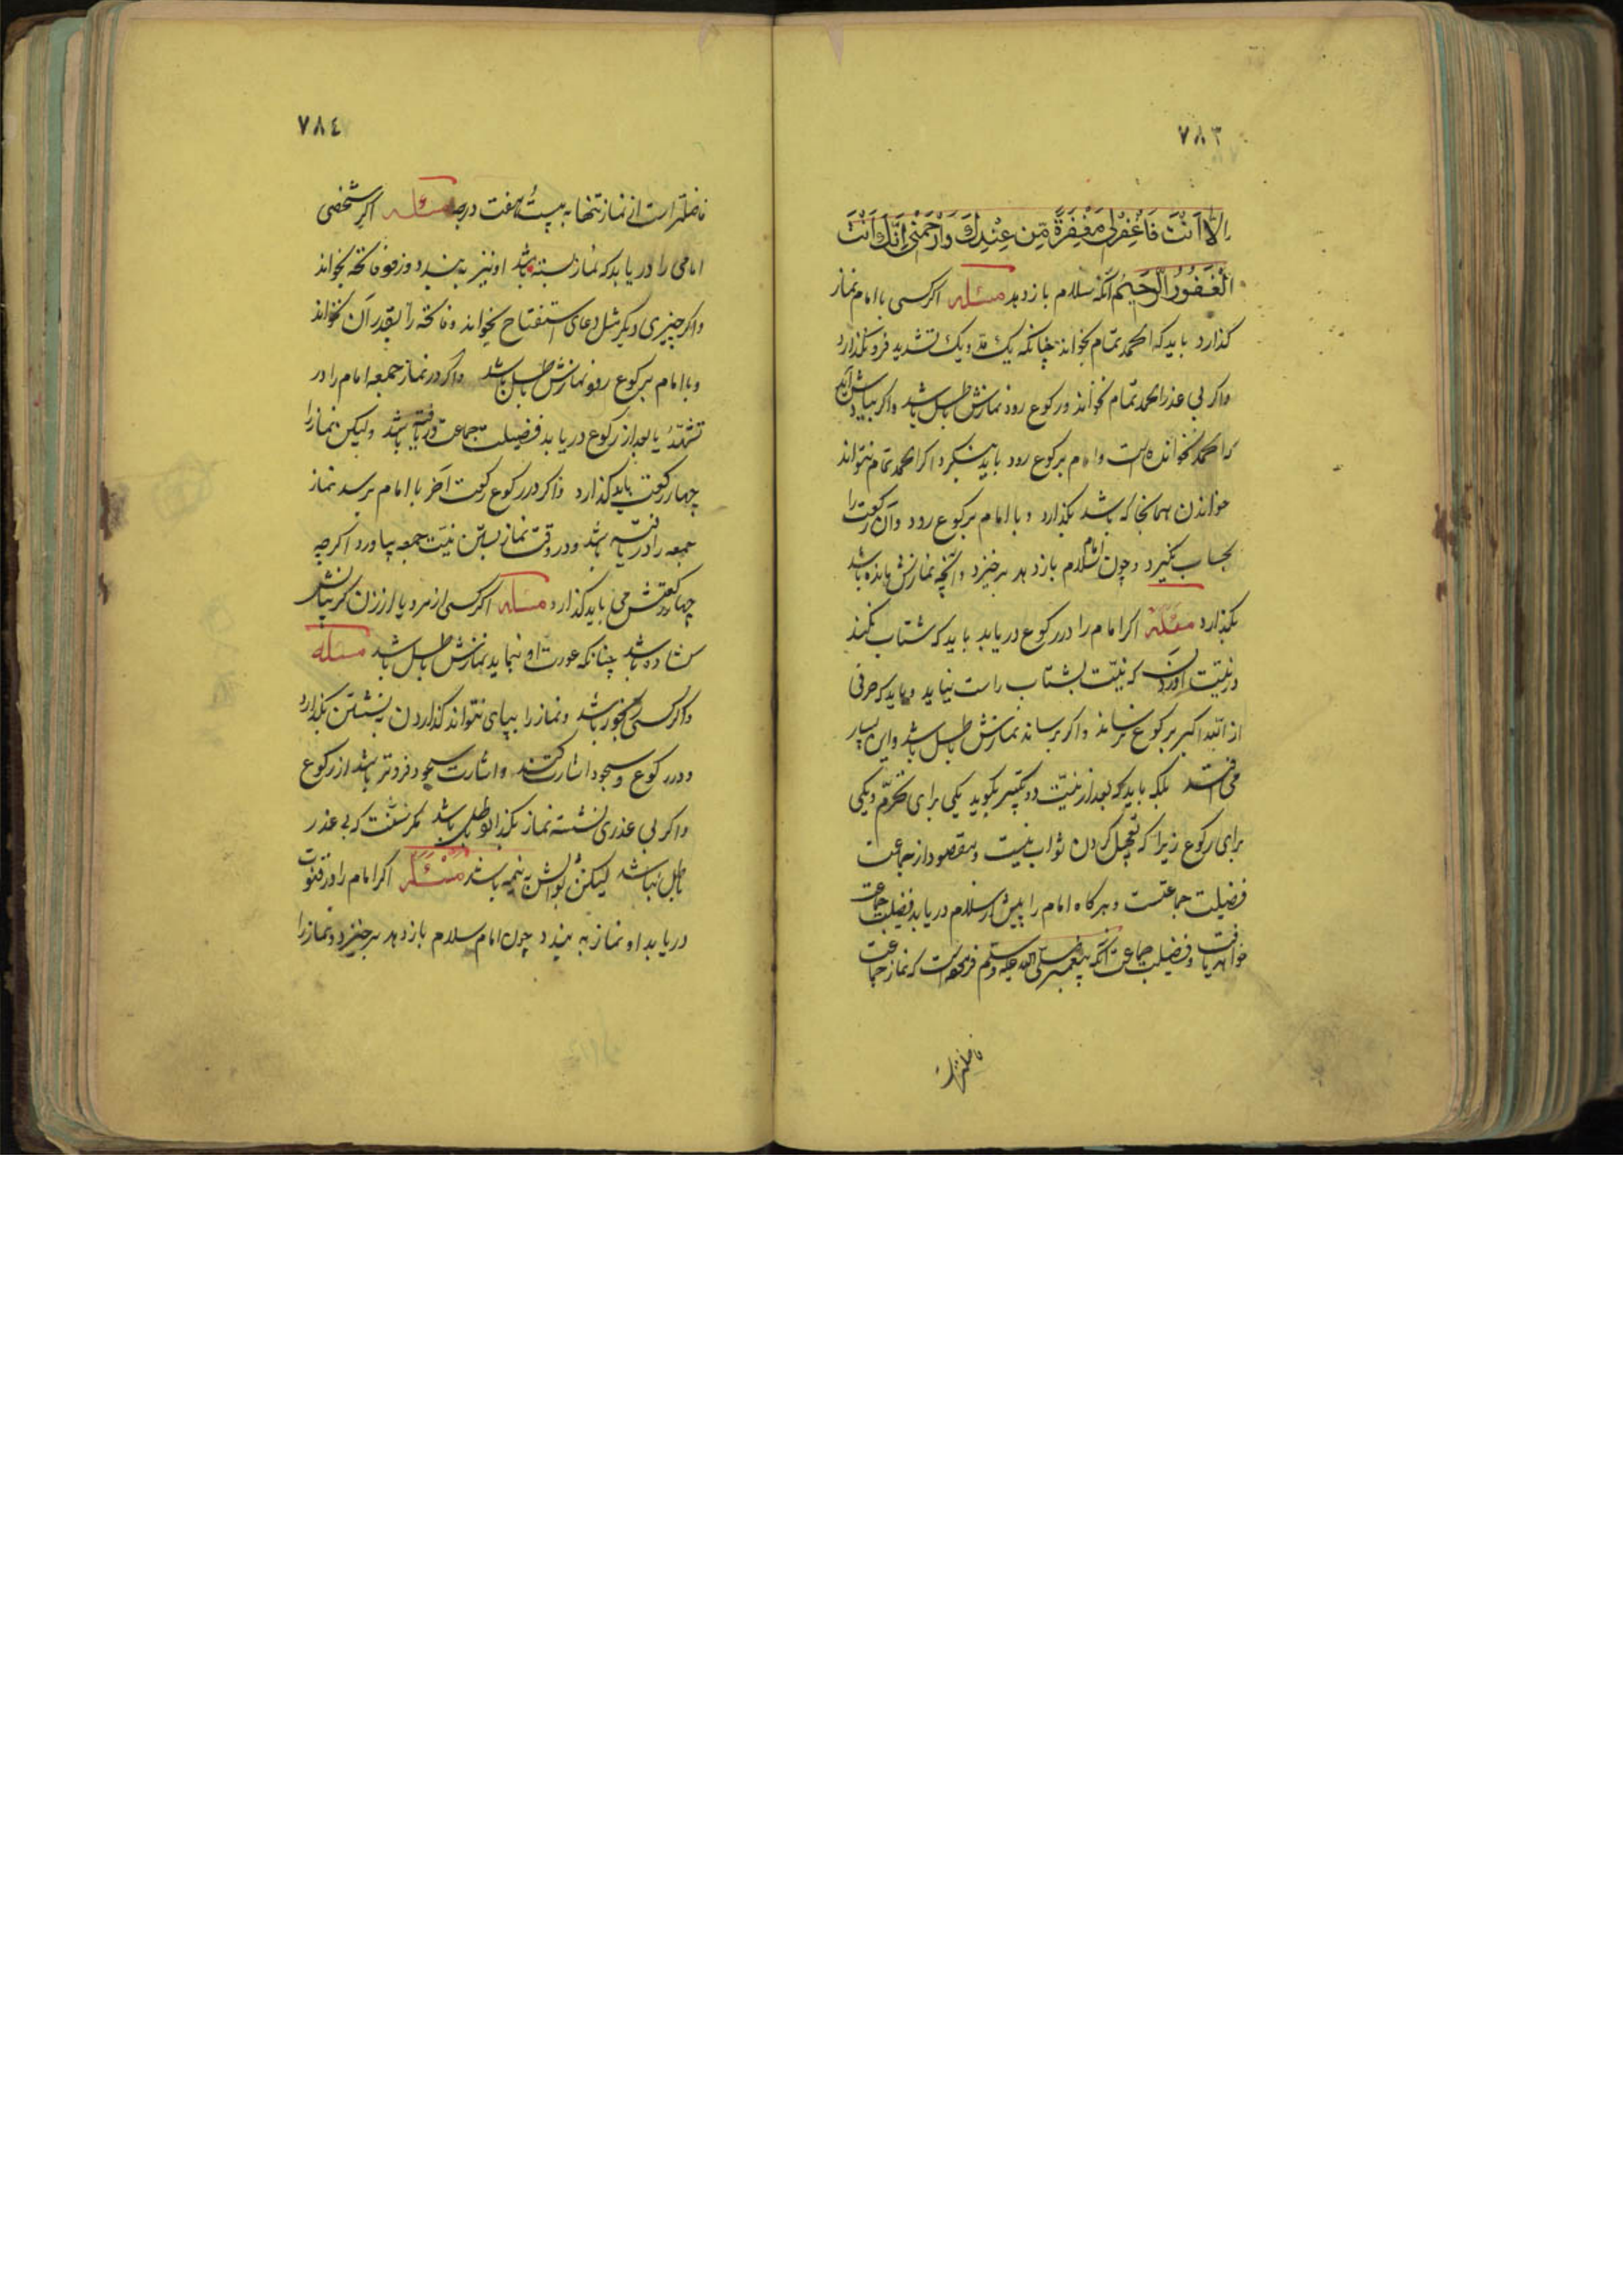 ٧٨٣
اِلَّا اَنْتَ فَاغْفِرْلِی مَغْفِرَةً مِّن عِنْدِكَ وَارْحَمْنِی اِنَّكَ اَنْتَ
الْغَفُورُ الرَّحِیْمُ آنکه سلام باز دهد مسئله اکر کسی با امام نماز
کذارد باید که الحمد تمام بخواند چنانکه یک مدّ و یک تشدید فرو نکذارد
واکر بی عذر الحمد تمام نخواند و رکوع رود نمازش باطل باشد واکر بیادش آید
که الحمد نخوانده است و امام برکوع رود باید بنکرد اکر الحمد تمام نتواند
خواندن بهمانجا که باشد بکذارد و با امام برکوع رود وآن رکعت را
بحساب نکیرد و چون امام سلام باز دهد برخیزد و آنچه نمازش مانده باشد
بکذارد مسئله اکر امام را در رکوع دریابد باید که شتاب نکند
در نیّت آوردن که نیّت بشتاب راست نیاید و باید که حرفی
از الله اکبر برکوع نرساند واکر برساند نمازش باطل باشد واین بسیار
می افتد بلکه باید که بعد از نیّت دو تکبیر بکوید یکی برای تحرّم ویکی
برای رکوع زیرا که تعجیل کردن ثواب نیست ومقصود از جماعت
فضیلت جماعتست وهرکاه امام را پیش از سلام دریابد فضیلت جماعت
خواهد یافت وفضیلت جماعت آنکه پیغمبر صلی الله علیه وسلم فرموده است که نماز جماعت
فاضلتر است
٧٨٤
فاضلتر است از نماز تنها به بیست و هفت درجه مسئله اکر شخصی
امامی را دریابد که نماز بسته باشد او نیز به بندد و زود فاتحه بخواند
واکر چیزی دیکر مثل دعای استفتاح بخواند وفاتحه را بقدر آن نخواند
وبا امام برکوع رود نمازش باطل باشد واکر در نماز جمعه امام را در
تشهّد یا بعد از رکوع دریابد فضیلت جماعت دریافته باشد ولیکن نماز را
چهار رکعت باید کذارد واکر در رکوع رکعت آخر با امام برسد نماز
جمعه را دریافته باشد ودر وقت نماز بستن نیّت جمعه بیاورد اکرچه
چهار رکعتش می باید کذارد مسئله اکر کسی از مرد یا از زن کریبانش
کشاده باشد چنانکه عورت او نماید نمازش باطل باشد مسئله
واکر کسی رنجور باشد ونماز را بپای نتواند کذاردن بنشستن بکذارد
ودر رکوع وسجود اشارت کند واشارت سجود فروتر باشد از رکوع
واکر بی عذری نشسته نماز بکذارد باطل باشد مکر سنّت که بی عذر
باطل نباشد لیکن ثوابش به نیمه باشد مسئله اکر امام را در قنوت
دریابد او نماز به بندد چون امام سلام باز دهد برخیزد ونماز را